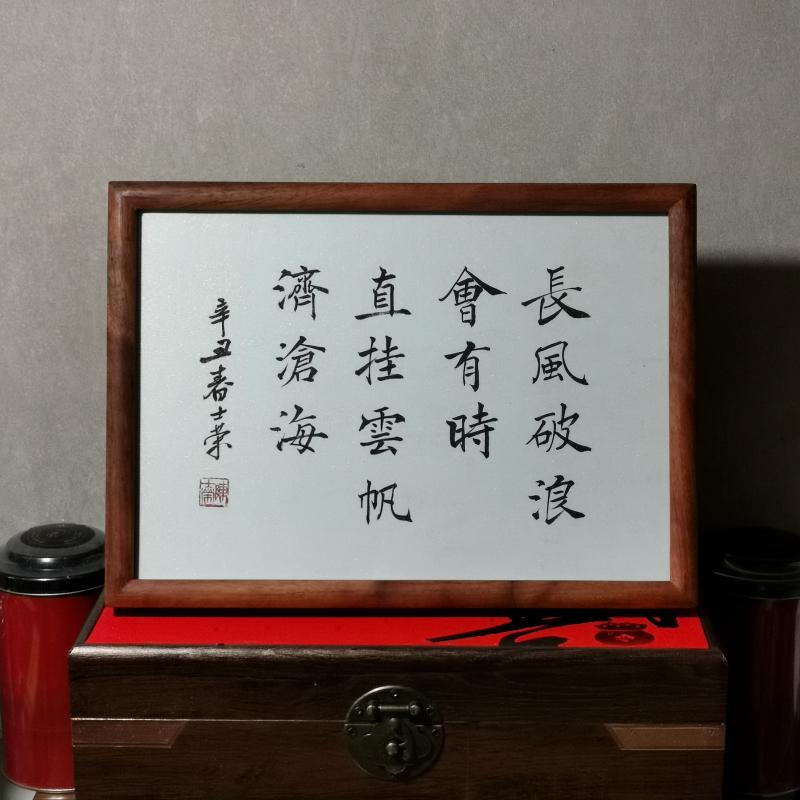 長風破浪
會有時
直挂雲帆
濟滄海
辛丑春士荣